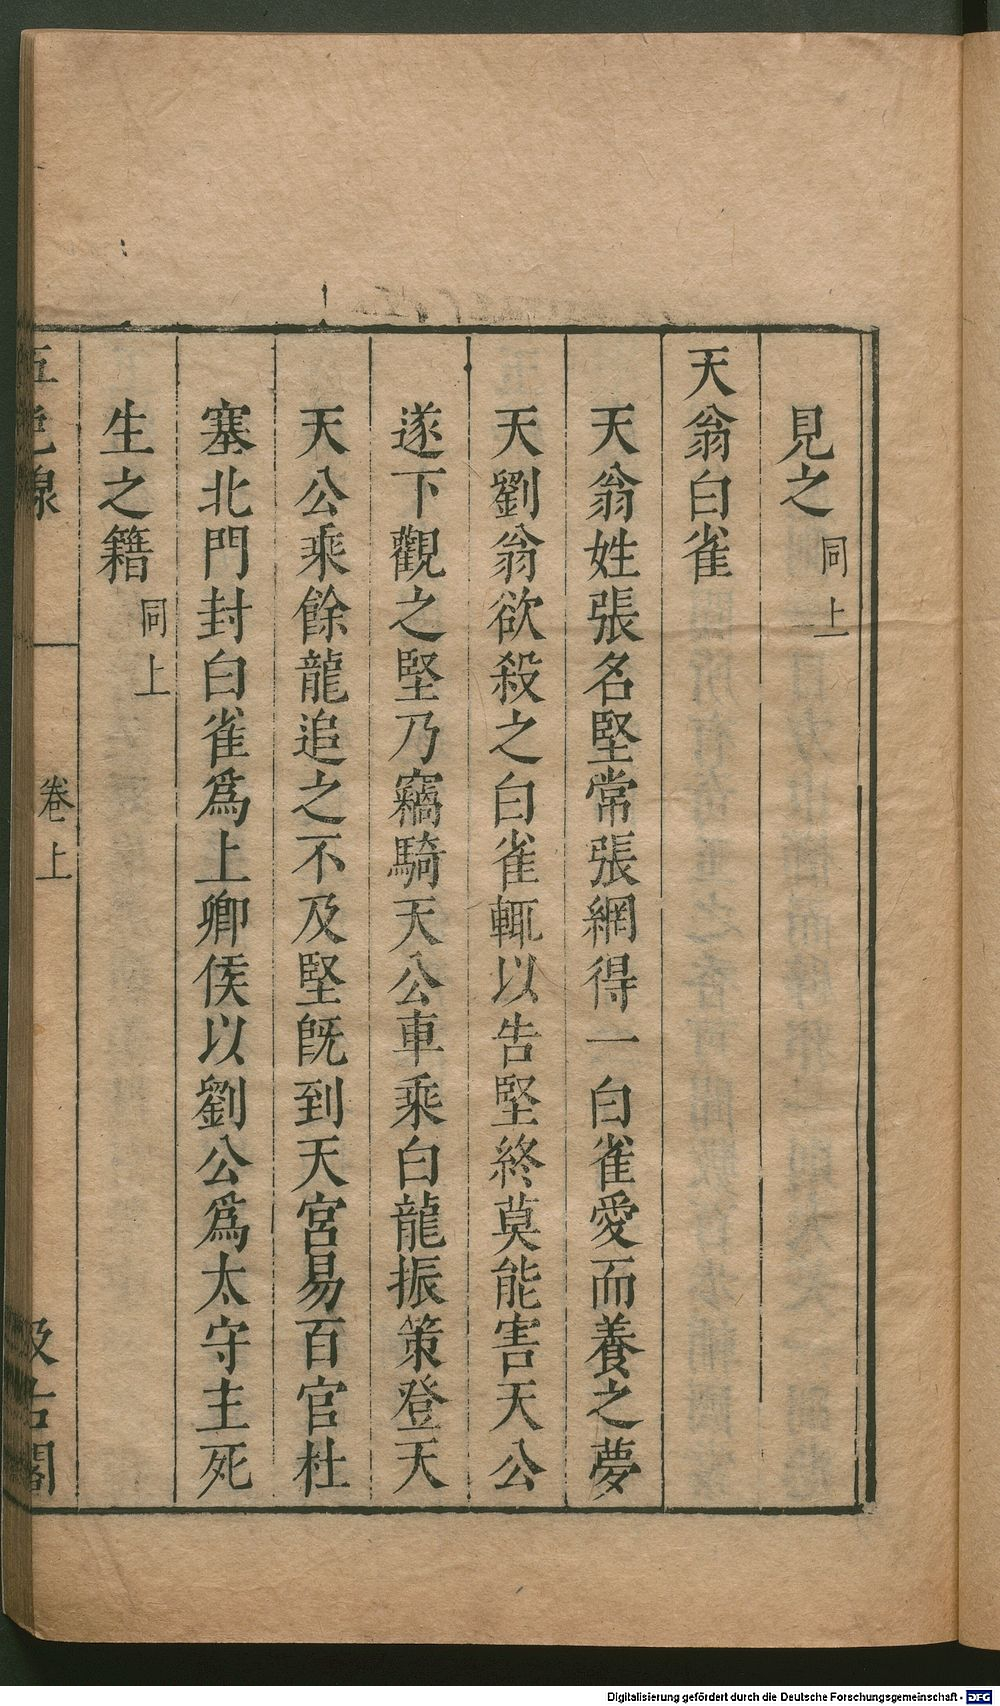 見之同上
天翁白雀
天翁姓張名堅常張網得一白雀愛而養之夢
天劉翁欲殺之白雀輒以告堅終莫能害天公
遂下觀之堅乃竊騎天公車乘白龍振策登天
天公乘餘龍追之不及堅旣到天宮易百官杜
塞北門封白雀爲上卿侯以劉公爲太守主死
生之籍同上
五色線
卷上
汲古閣
Digitalisierung gefördert durch die Deutsche Forschungsgemeinschaft - DFG